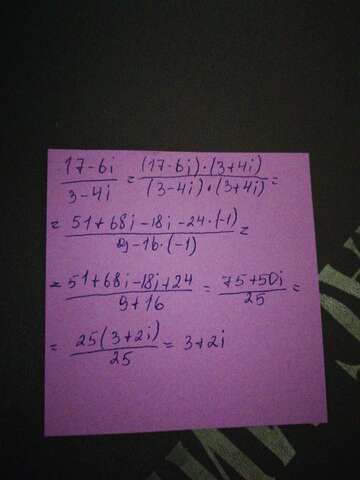 17-6i / 3-4i = (17-6i)·(3+4i) / (3-4i)·(3+4i) =
= 51+68i-18i-24·(-1) / 9-16·(-1) =
= 51+68i-18i+24 / 9+16 = 75+50i / 25 =
= 25(3+2i) / 25 = 3+2i